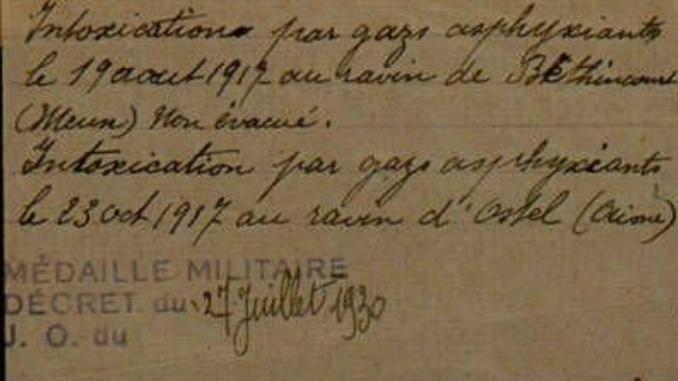 Intoxication par gazs asphyxiants
le 19 aout 1917 au ravin de Béthincourt
(Meuse) Non évacué.
Intoxication par gazs asphyxiants
le 23 oct 1917 au ravin d'Ostel (Aisne)
MÉDAILLE MILITAIRE
DÉCRET du 27 Juillet 1930
J. O. du